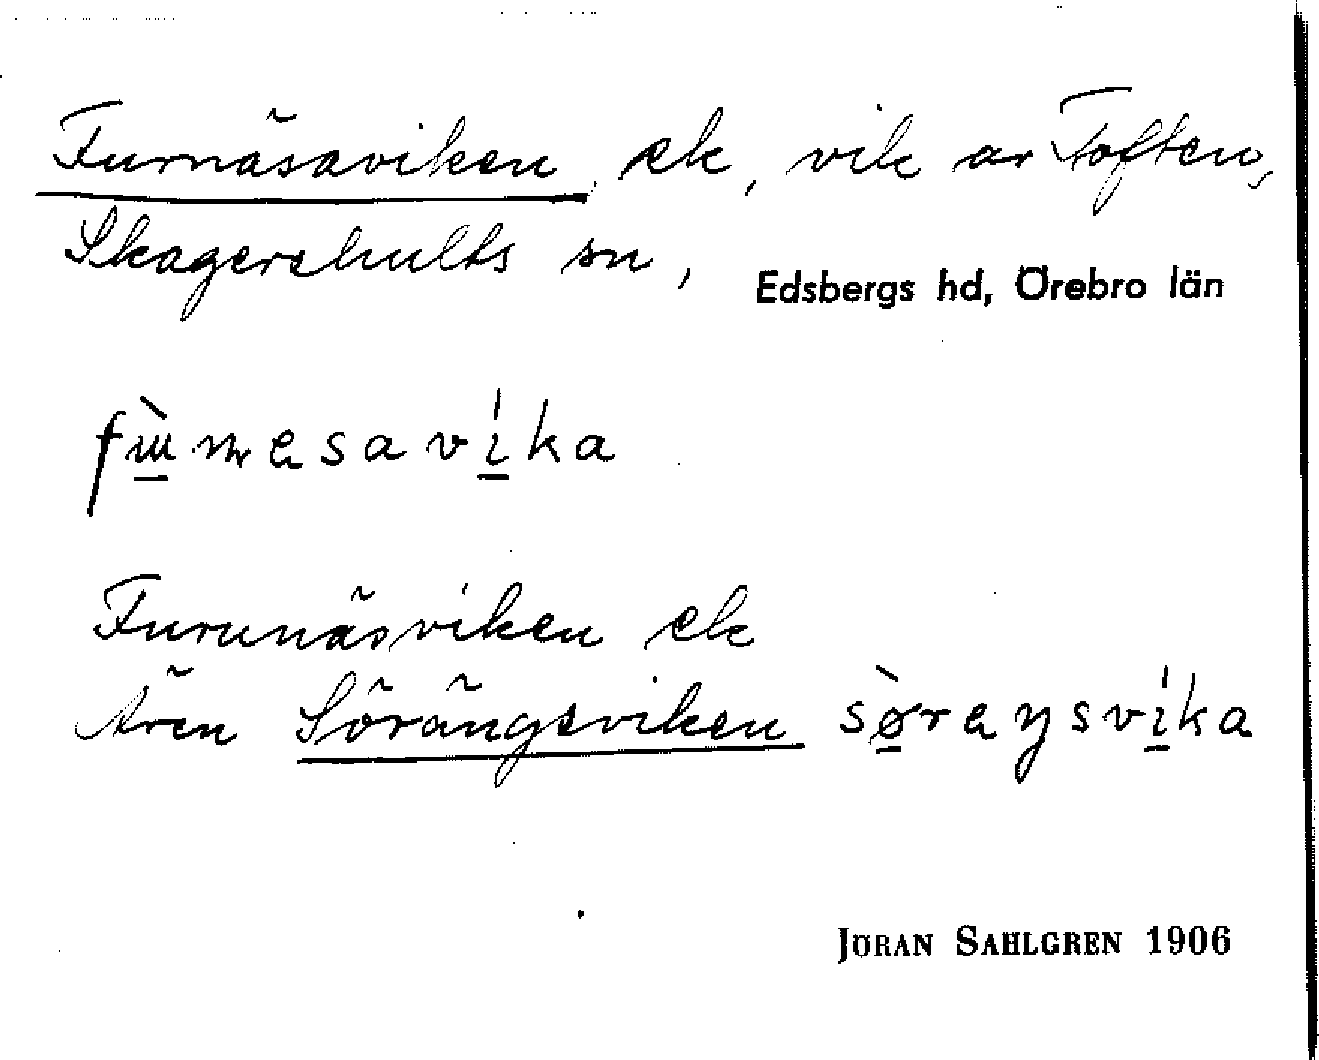 Furnäsaviken, ek, vik av Toften,
Skagershults sn, Edsbergs hd, Örebro län
Furunäsviken ek
Även Sörängsviken
JÖRAN SAHLGREN 1906